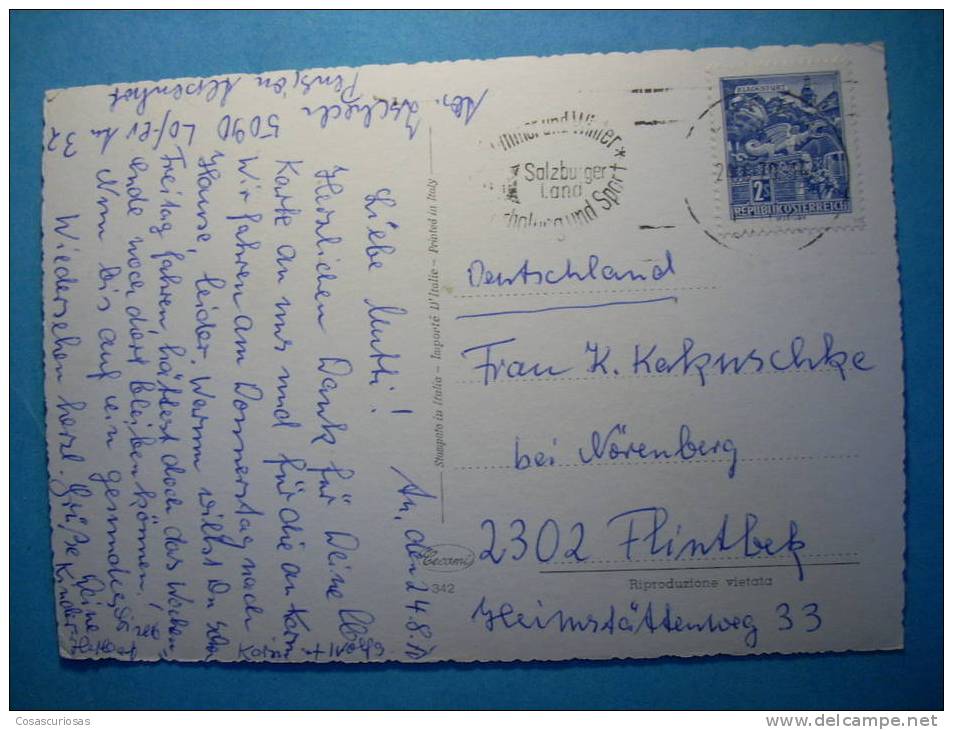 Abs. Tschech
Pension Alpenhof
5090 Lofer
32
Liebe Mutti! An, den 24.8.70
Herzlichen Dank für Deine liebe
Karte an uns und für die an Karin
Wir fahren am Donnerstag nach
Hause, leider. Warum willst Du schon
Freitag fahren, hättest doch das Wochen-
ende noch dort bleiben können!
Nun bis auf ein gesundes
Wiedersehen herzl. Grüße Deine
Kinder
Karin +
Stampato in Italia - Importé D'Italie - Printed in Italy
Cecami
342
Sommer und Winter *
Salzburger
Land
Erholung und Sport
KLAGENFURT
2 S
REPUBLIK ÖSTERREICH
Deutschland
Frau K. Kakuschke
bei Nörenberg
2302 Flintbek
Riproduzione vietata
Heimstättenweg 33
Cosascuriosas
www.delcampe.net